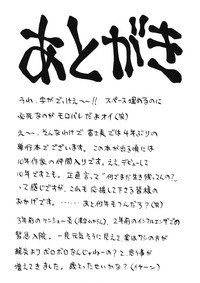 あとがき
うわ、字がでけぇ〜!! スペース埋めるのに
必死なのがモロバレだよオイ(笑)
え〜、そんなわけで富士美では4年ぶりの
単行本でございます。この本が出る頃には
10年作家の仲間入りです。ええ、デビューして
10年ですよ。正直言って"何でまだ生き残ってんの?"
って感じですが、これも応援して下さる皆様の
おかげです。……あと何年もつんだろ?(笑)
3年前の
2年前のインフルエンザでの
緊急入院。一見元気そうに見えて、実はワシの方が
ボロボロなんじゃねーの?と、思う事が
増えてきました。歳とったせいかな?